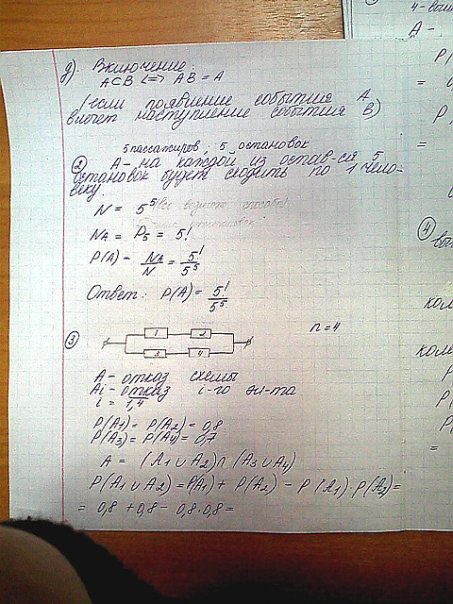 д) Включение:
A⊂B <=> AB = A
(если появление события A
влечет наступление события B)
5 пассажиров, 5 остановок
② A - на каждой из остав-ся 5
остановок будет сходить по 1 чело-
веку.
N = 5⁵ (все
N_A = P₅ = 5!
P(A) = N_A/N = 5!/5⁵
Ответ: P(A) = 5!/5⁵
③ 1 2 n=4
3 4
A - отказ схемы
Ai - отказ i-го эл-та
i = 1,4
P(A₁) = P(A₂) = 0,8
P(A₃) = P(A₄) = 0,7
A = (A₁ ∪ A₂) ∩ (A₃ ∪ A₄)
P(A₁ ∪ A₂) = P(A₁) + P(A₂) - P(A₁)·P(A₂) =
= 0,8 + 0,8 - 0,8·0,8 =
A -
P(
=
P
=
④
коле
P(
P(
=